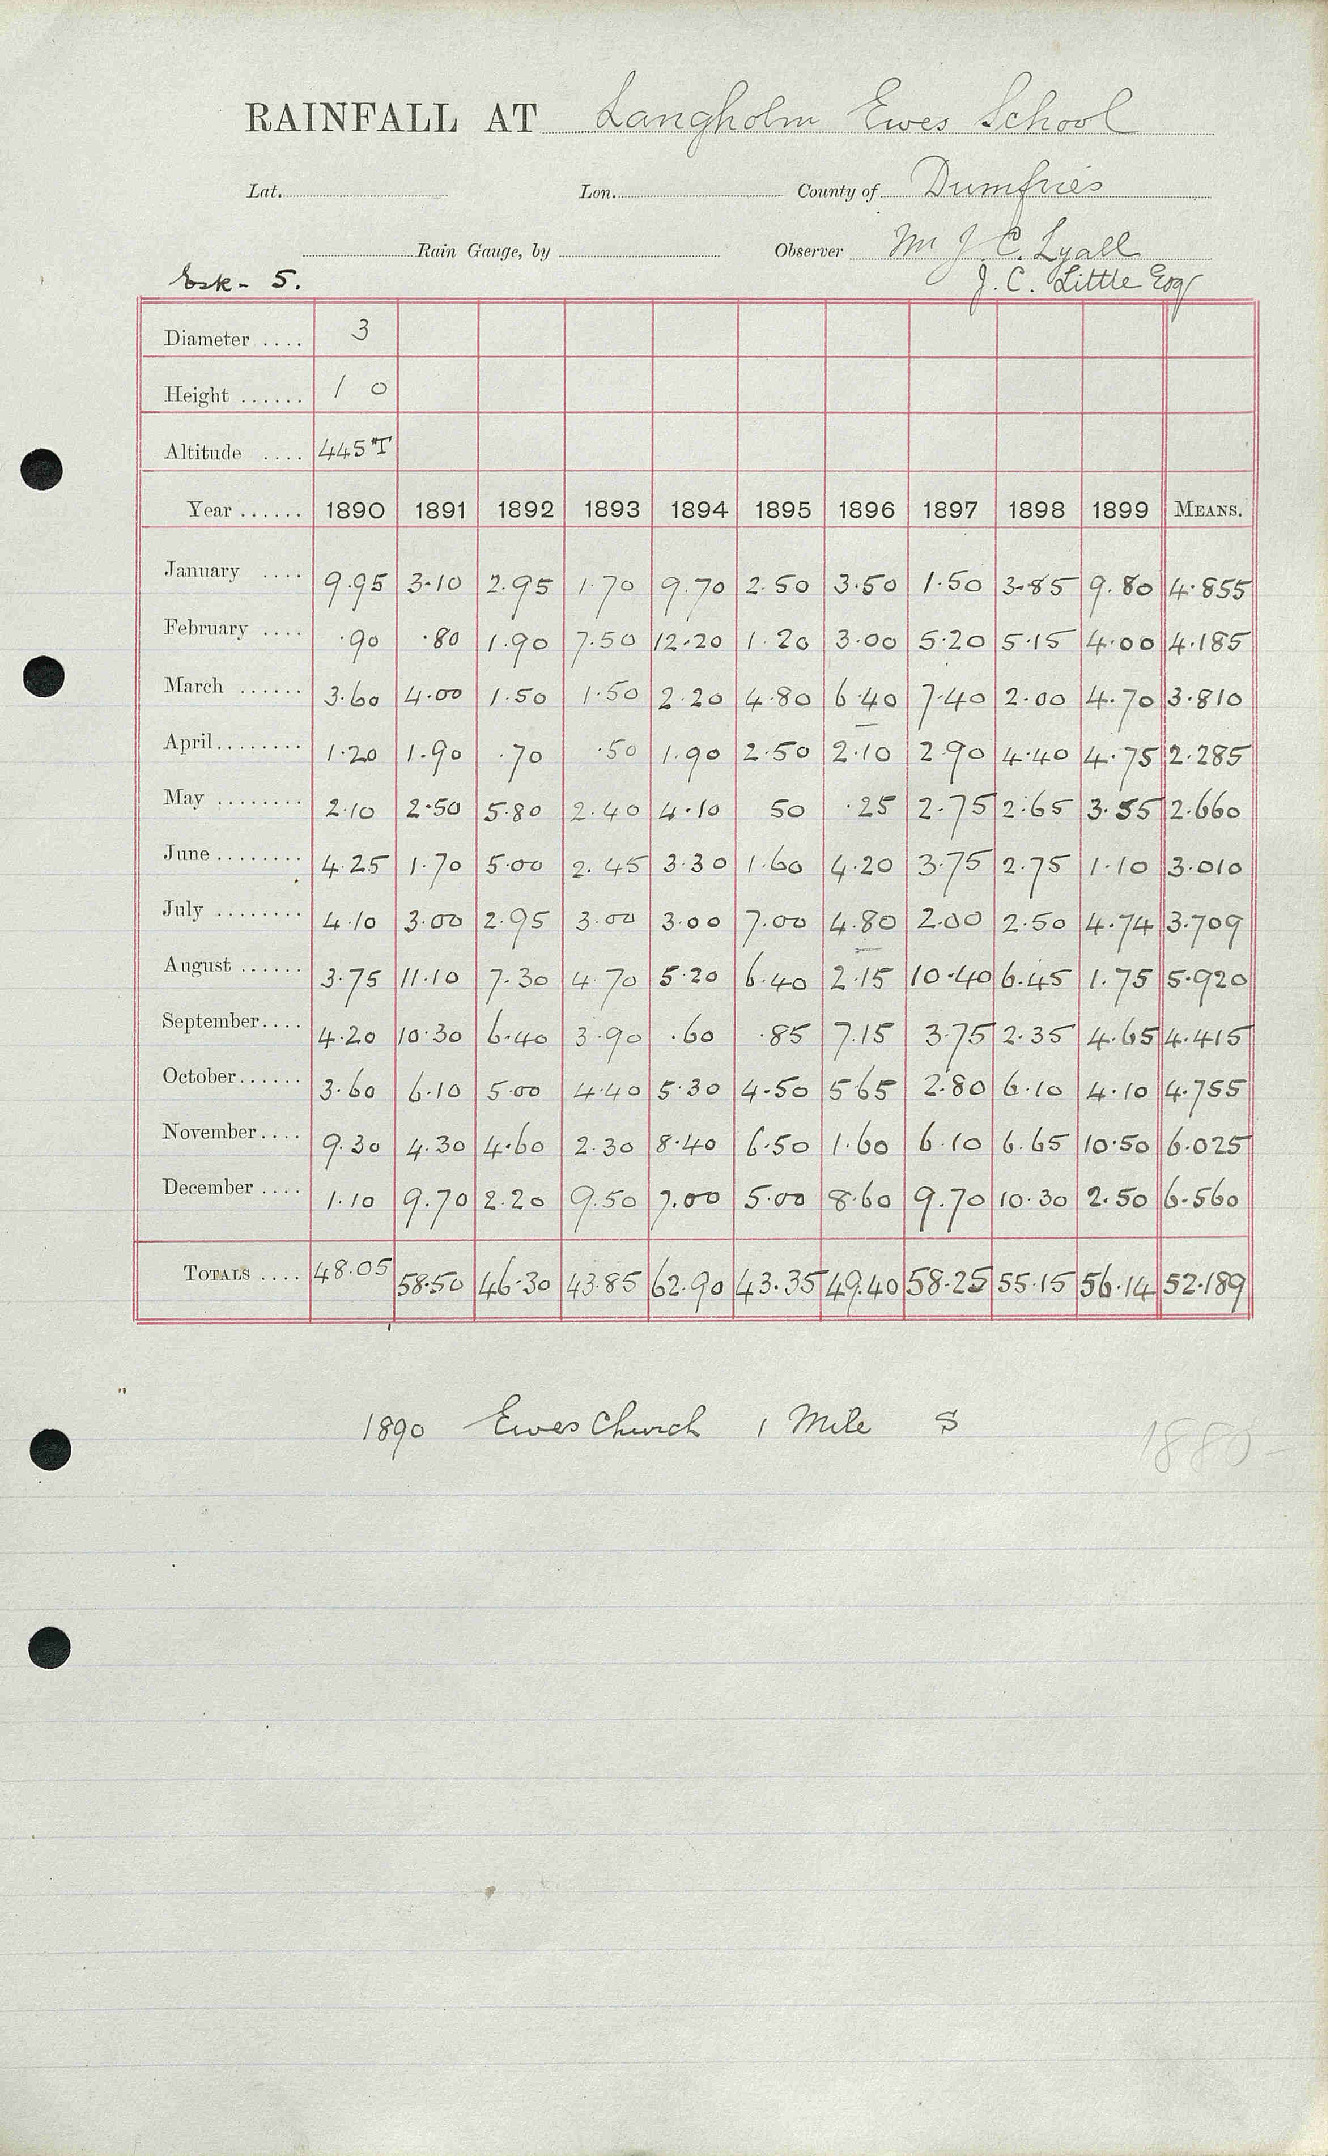 RAINFALL AT Langholm Ewes School
Lat. Lon. County of Dumfries
Rain Gauge, by Observer Mr J. C. Lyall
Esk - 5. J. C. Little Esq
Diameter .... 3
Height ...... 1 0
Altitude .... 445 T
Year ...... 1890 1891 1892 1893 1894 1895 1896 1897 1898 1899 MEANS.
January .... 9.95 3.10 2.95 1.70 9.70 2.50 3.50 1.50 3.85 9.80 4.855
February .... .90 .80 1.90 7.50 12.20 1.20 3.00 5.20 5.15 4.00 4.185
March ...... 3.60 4.00 1.50 1.50 2.20 4.80 6.40 7.40 2.00 4.70 3.810
April........ 1.20 1.90 .70 .50 1.90 2.50 2.10 2.90 4.40 4.75 2.285
May ........ 2.10 2.50 5.80 2.40 4.10 50 .25 2.75 2.65 3.55 2.660
June ........ 4.25 1.70 5.00 2.45 3.30 1.60 4.20 3.75 2.75 1.10 3.010
July ........ 4.10 3.00 2.95 3.00 3.00 7.00 4.80 2.00 2.50 4.74 3.709
August ...... 3.75 11.10 7.30 4.70 5.20 6.40 2.15 10.40 6.45 1.75 5.920
September.... 4.20 10.30 6.40 3.90 .60 .85 7.15 3.75 2.35 4.65 4.415
October...... 3.60 6.10 5.00 4.40 5.30 4.50 5.65 2.80 6.10 4.10 4.755
November.... 9.30 4.30 4.60 2.30 8.40 6.50 1.60 6.10 6.65 10.50 6.025
December .... 1.10 9.70 2.20 9.50 7.00 5.00 8.60 9.70 10.30 2.50 6.560
TOTALS .... 48.05 58.50 46.30 43.85 62.90 43.35 49.40 58.25 55.15 56.14 52.189
1890 Ewes Church 1 Mile S
1880-